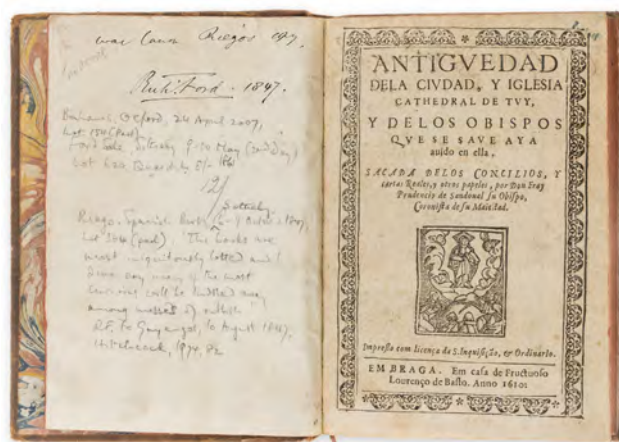 was Canon Riego's
Rich. Ford. 1847.
Oxford, 24 April 2007,
Lot 154 (Part)
Ford Sale, Sotheby 9-10 May (2nd Day)
Lot 620
12/
Sotheby
Riego. Spanish Books
lot 564 (part). "The books are
most iniquitously lotted and
many of the most
curious will be
among masses of rubbish"
RF. to Gayangos, 10 August 1847,
Hitchcock, 1974, 82
ANTIGVEDAD
DELA CIVDAD, Y IGLESIA
CATHEDRAL DE TVY,
Y DELOS OBISPOS
QVE SE SAVE AYA
auido en ella,
SACADA DELOS CONCILIOS, Y
cartas Reales, y otros papeles, por Don Fray
Prudencio de Sandoual su Obispo,
Coronista de su Maiestad.
Impressa com licença da S. Inquisição, & Ordinario.
EM BRAGA. Em casa de Fructuoso
Lourenço de Basto. Anno 1610: